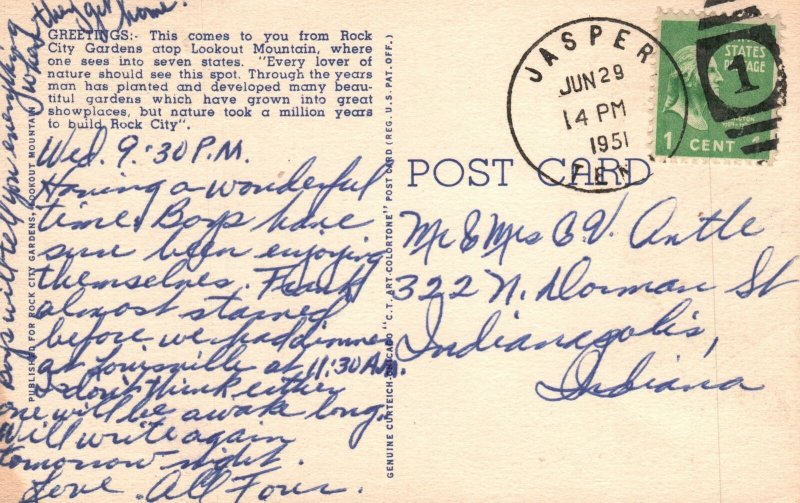 GREETINGS:- This comes to you from Rock
City Gardens atop Lookout Mountain, where
one sees into seven states. "Every lover of
nature should see this spot. Through the years
man has planted and developed many beau-
tiful gardens which have grown into great
showplaces, but nature took a million years
to build Rock City".
Wed. 9:30 P.M.
Having a wonderful
time. Boys have
sure been enjoying
themselves. Frank
almost starved
before we had dinner
at Louisville at 11:30 A.M.
I don't think either
one will be awake long.
Will write again
tomorrow night.
Love. All Four.
Boys will tell you everything
when they get home.
PUBLISHED FOR ROCK CITY GARDENS, LOOKOUT MOUNTAIN
GENUINE CURTEICH-CHICAGO "C.T. ART-COLORTONE" POST CARD (REG. U.S. PAT. OFF.)
POST CARD
JASPER
JUN 29
14 PM
1951
TEN
STATES
POSTAGE
1
1 CENT
Mr & Mrs C. V. Antle
322 N. Dorman St
Indianapolis,
Indiana